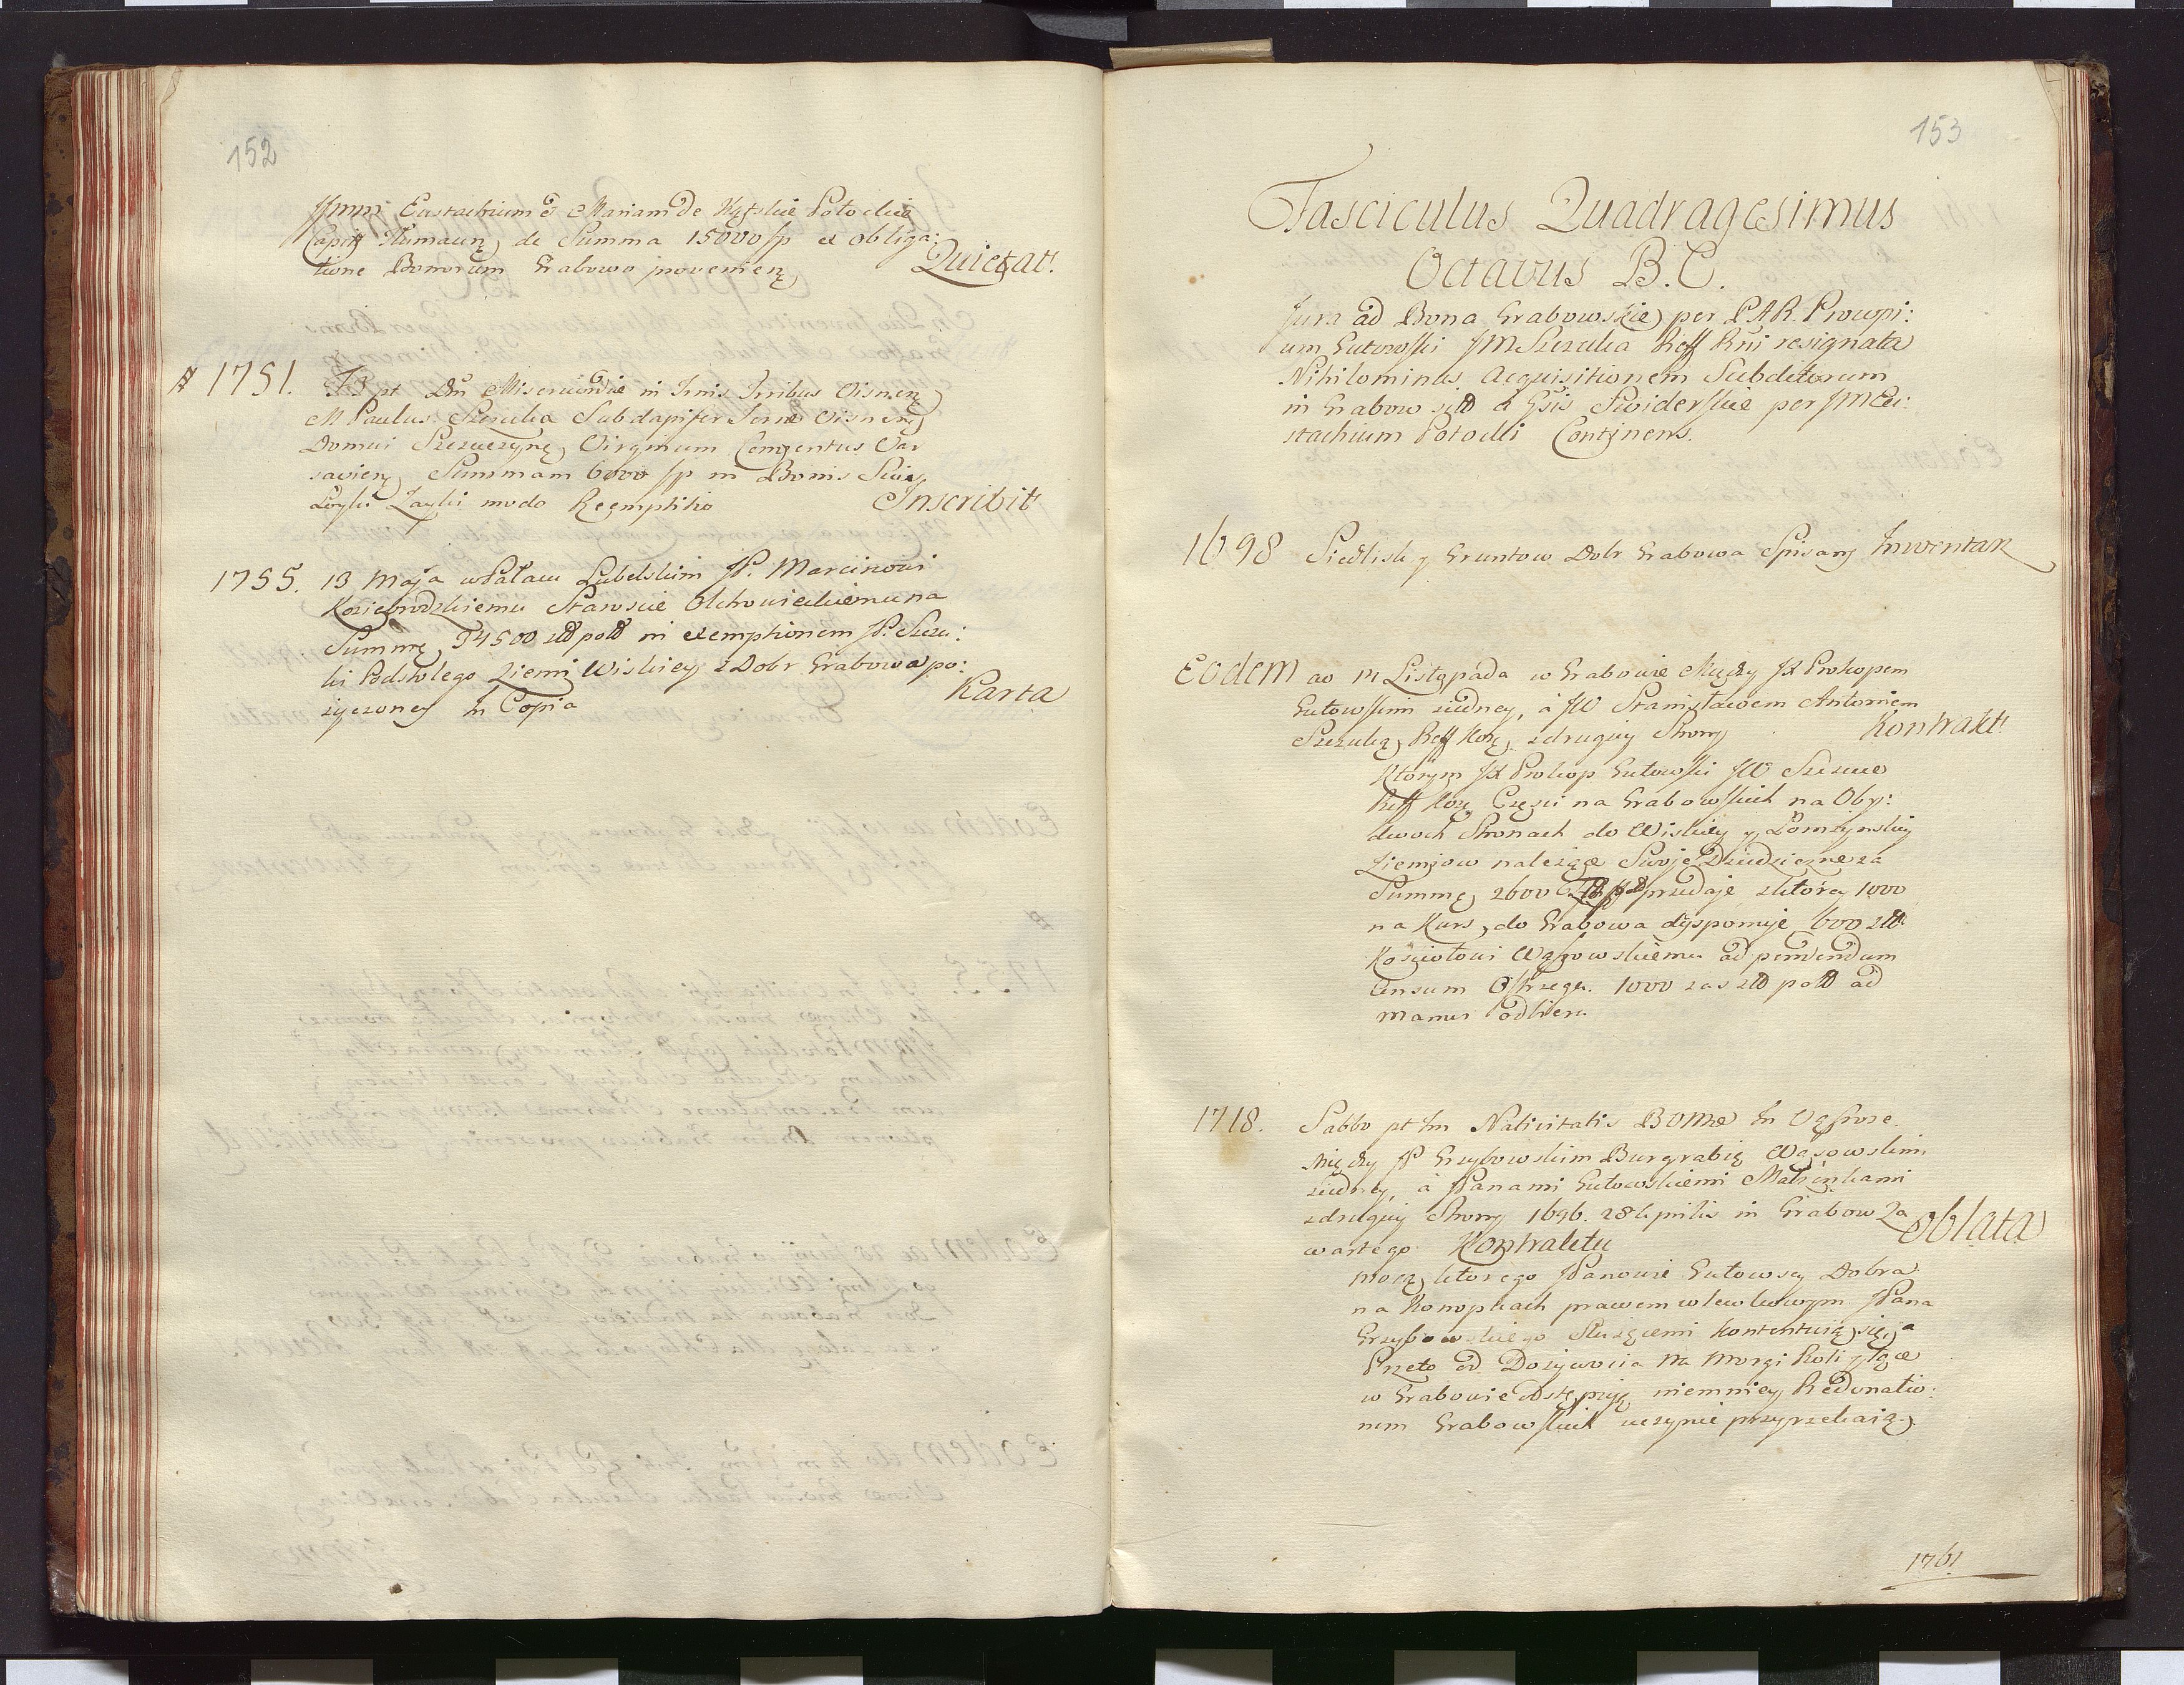 152
JJmm Eustachium & Mariam de Kątskie Potockie
Capit Tłumaczę de Summa 15000 fp ex obliga:
tione Bonorum Grabowo provenien Quietat.
1751. F3 pt Dm Misericordiae in Trnis Trribus Visnen
M Paulus Szczuka Subdapifer Terrae Visnen
Domui Szczuczynen Virginum Conventus Var
savien Summam 6000 fp in Bonis
Łayki modo Reemptitio Inscribit
1755. 13 Maja w Pałacu Lubelskim JP. Marcinowi
Koziebrodzkiemu Staroscie Olchowieckiemu na
Summę 34500 złł poll in exemptionem JP. Szczu:
ki Podstolego Ziemi Wiskiey z Dobr Grabowa po:
zyczoney In Copia Karta
153
Fasciculus Quadragesimus
Octavus B.C.
Jura ad Bona Grabowskie per PAR. Procopi:
um Gutowski JM Szczuka Reff Rni resignata
Nihilominus Acquisitionem Subditorum
in Grabow a Gsis Swiderskie per JM Eu:
stachium Potocki Continens.
1698 Siedlisk y Gruntow Dobr Grabowa Spisany Inwentarz
Eodem ao 14 Listopada w Grabowie Między JX Prokopem
Gutowskim ziedney, á JW Stanisławem Antonim
Szczuką Reff Korę z drugiey Strony Kontrakt
Ktorym JX Prokop Gutowski JW Szczuce
Reff Korę Częsci na Grabowskich na Oby:
dwoch Stronach do Wiskiey y Łomzynskiey
Ziemiow należące Swoje Dziedziczne za
Summę 2600 przedaje z ktorey 1000
na Kurs do Grabowa dysponuje 600 złł.
Kościołowi Wąsowskiemu ad pendendum
Censum Ostrzega. 1000 zas złł poll ad
manus odbiera.
1718. Sabbo pt Fm Nativitatis BVMae In Vąsose.
między JP Grzybowskim Burgrabią Wąsowskim
ziedney, á JPanami Gutowskiemi Małżąkami
z drugiey Strony 1696. 28 Aprilis in Grabow Za
wartego Kontraktu Oblata
mocą ktorego JPanowie Gutowscy Dobra
na Konopkach prawem wlewkowym JPana
Grzybowskiego Słuzącemi kontentuią się, a
Przeto od Dozywocia na Morgi Roli y łące
w Grabowie odstępuią niemniey Redonatio:
nem Grabowskich uczynic przyrzekaią.
1761